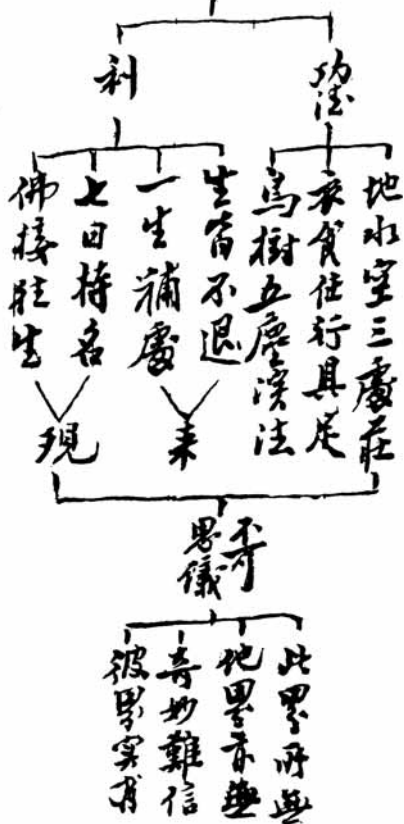 功德
利
地水空三處莊
衣食住行具足
鳥樹五塵演法
生皆不退
一生補處
七日持名
佛接往生
來
現
不可
思議
此界所無
他界亦無
奇妙難信
彼界實有